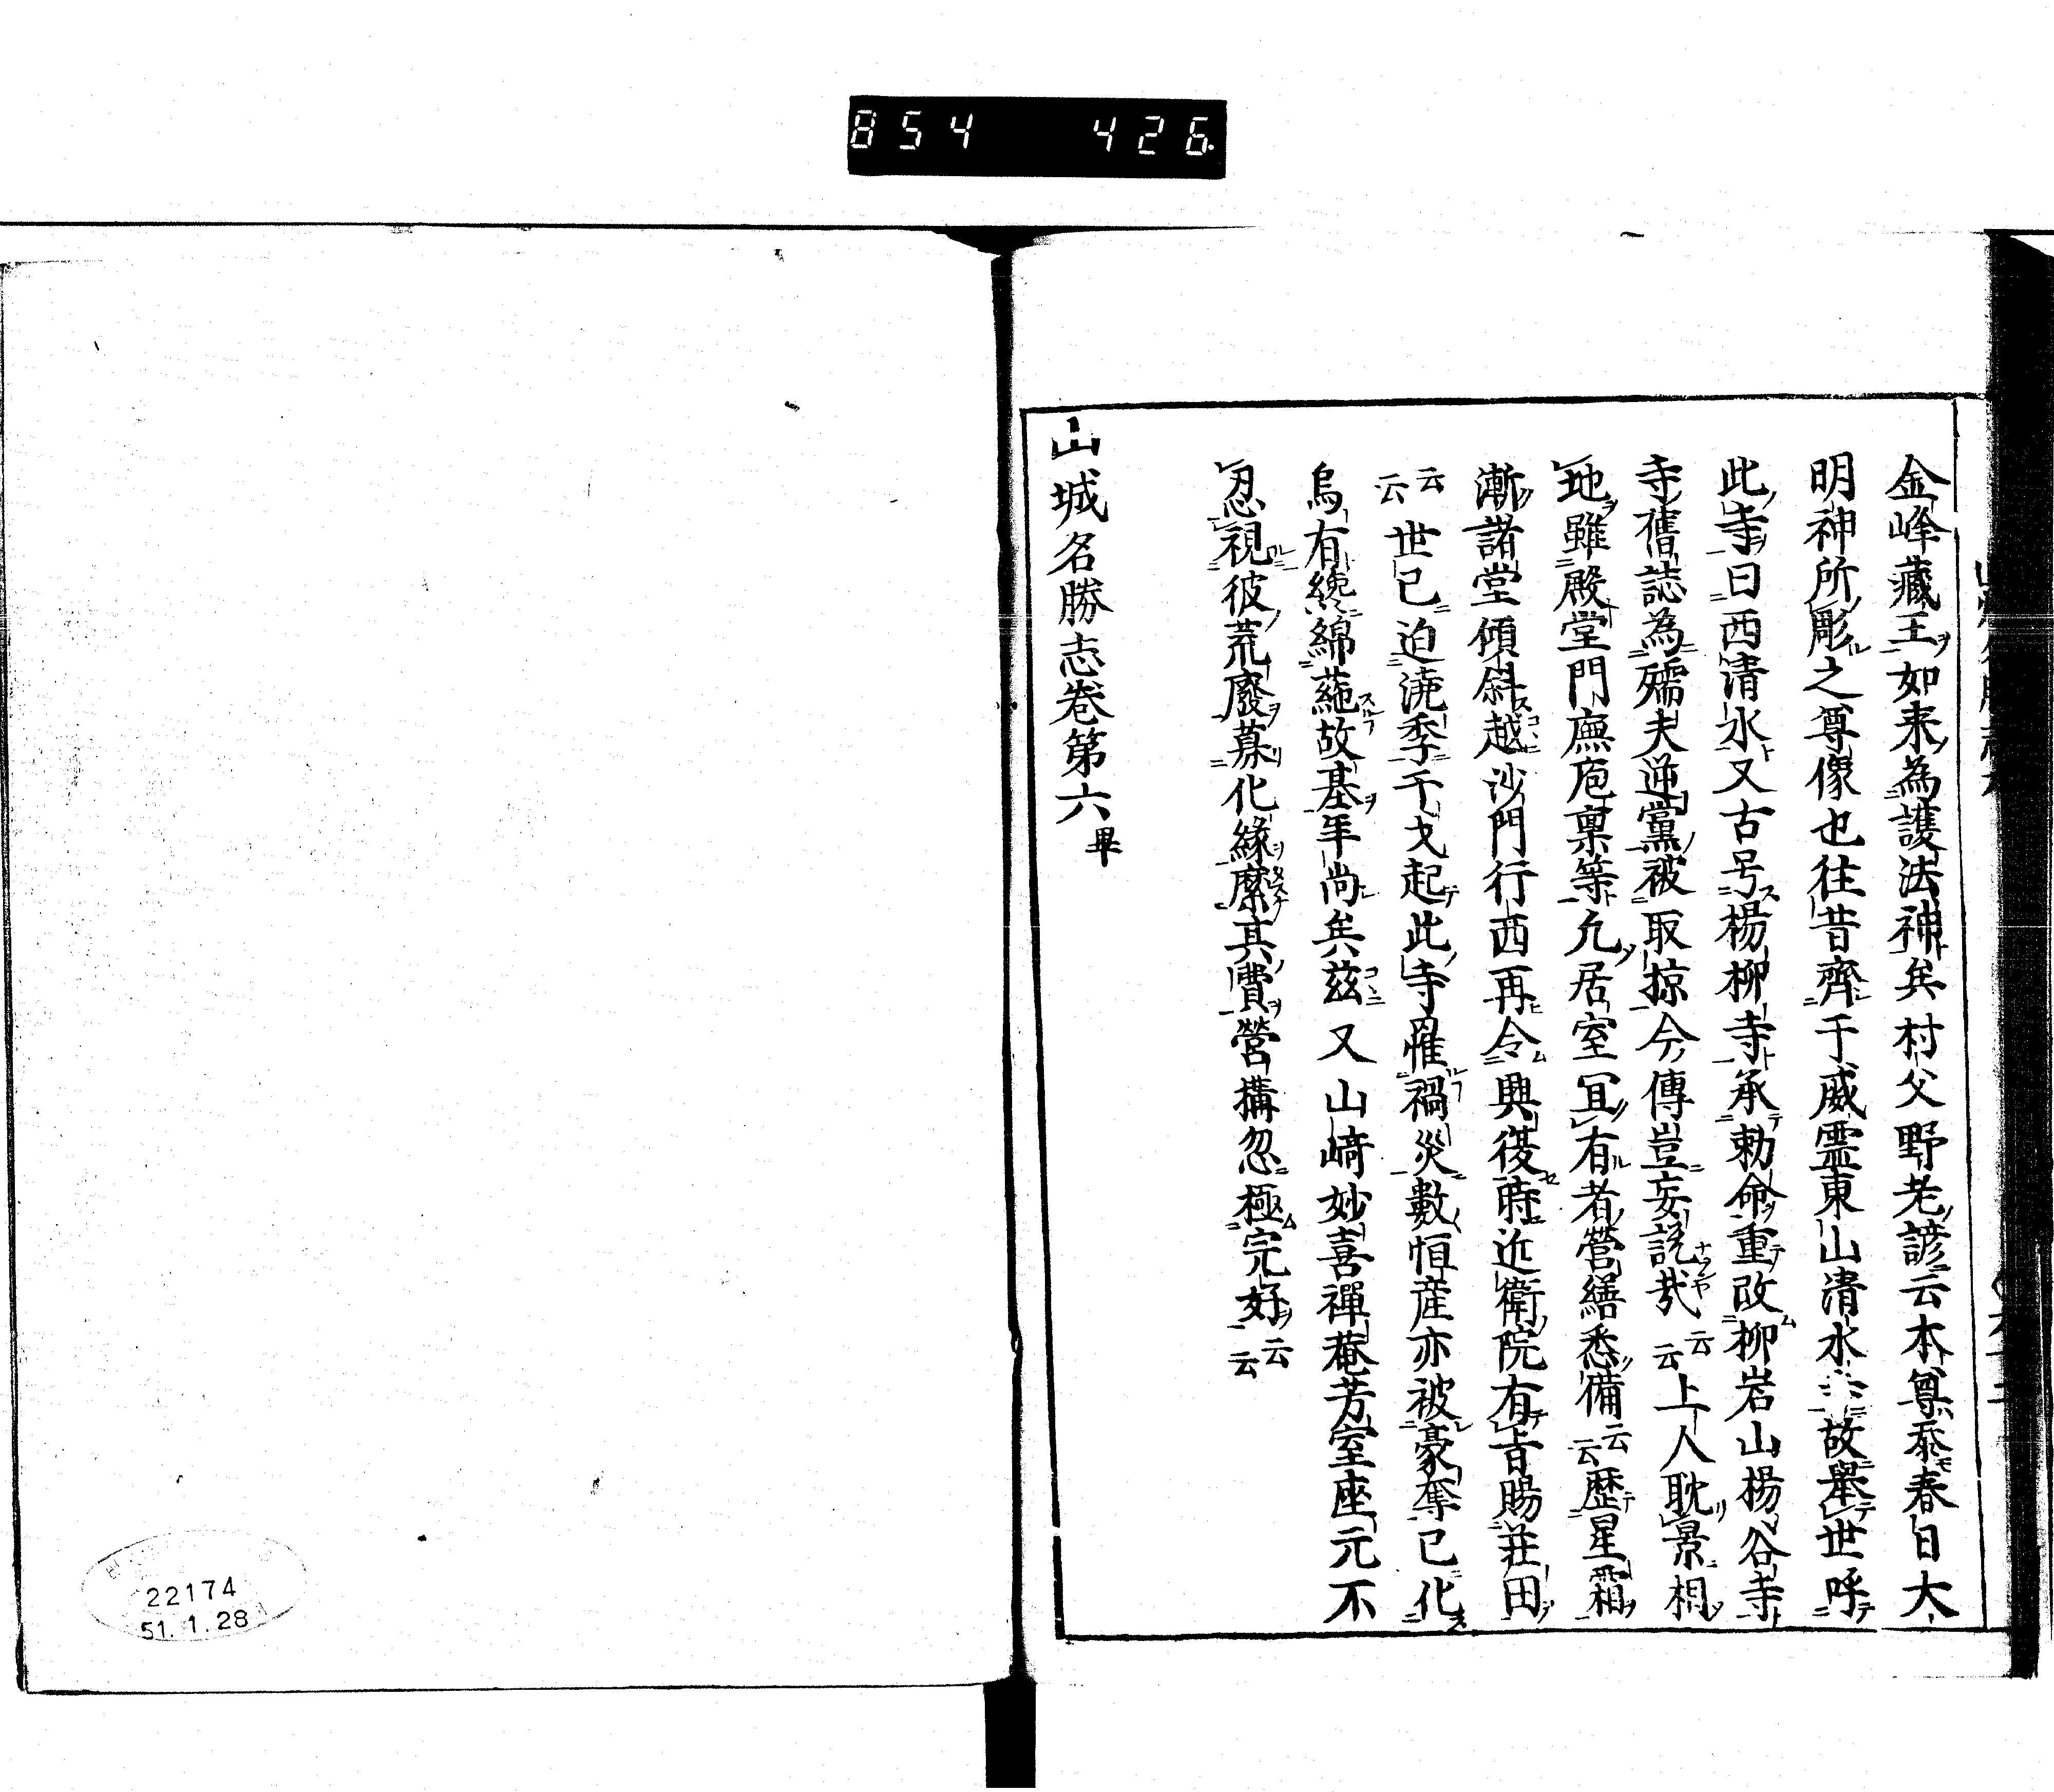 854 426
金峰藏王如来為護法神矣村父野老諺云本尊泰春日大
明神所彫之尊像也往昔齊于威霊東山清水故舉世呼
此寺曰西清水又古号楊柳寺承勅命重改柳岩山楊谷寺
寺舊誌為孺夫逆黨被取掠今傳豈妄説哉云云上人耽景相
地雖殿堂門廡庖稟等允居室冝有者營繕悉備云云歴星霜
漸諸堂傾斜越沙門行西再令興復時近衛院有旨賜莊田
云云世已迫澆季干戈起此寺罹禍災數恒産亦被豪奪已化
烏有纔綿蕝故基年尚矣茲又山﨑妙喜禪菴芳室座元不
忍視彼荒廢募化緣縻其費營構忽極完好云云
山城名勝志巻第六畢
22174
51.1.28